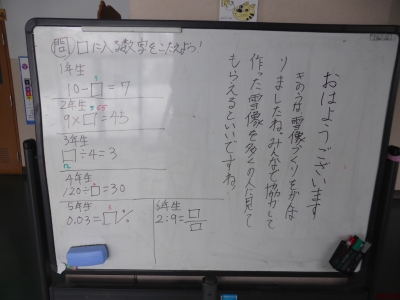 問 □に入る数字をこたえよう!
1年生
10-□=7
2年生
9×□=45
3年生
□÷4=3
12
4年生
120÷□=30
5年生
0.03=□%
6年生
2:9=□/□
おはようございます
きのうは雪像づくりをがんば
りましたね。みんなで協力して
作った雪像を多くの人に見て
もらえるといいですね!